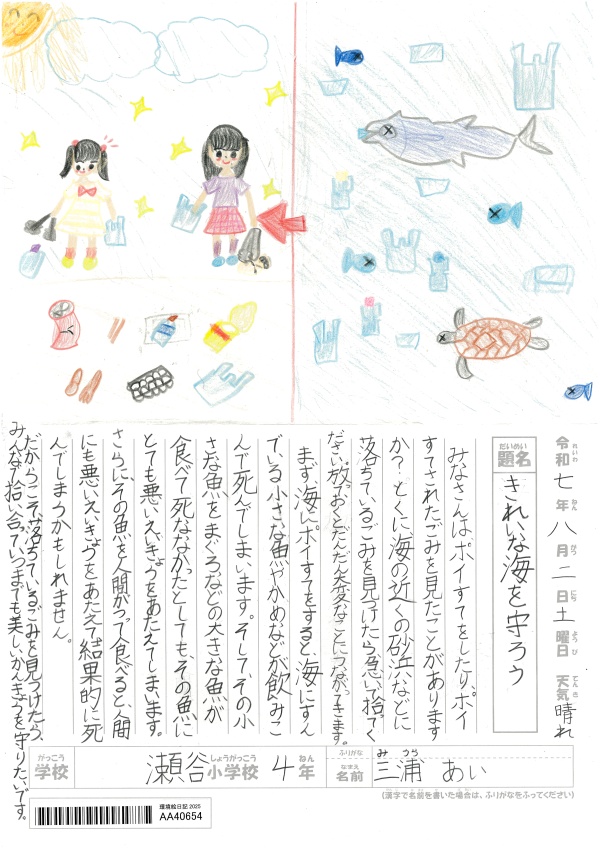 令和七年八月二日土曜日 天気 晴れ
れいわ ねん がつ にち ようび てんき
だいめい
題名
きれいな海を守ろう
みなさんはポイすてをしたり、ポイ
すてされたごみを見たことがあります
か?とくに海の近くの砂浜などに
落ちているごみを見つけたら、急いで捨てく
ださい。放っておくとだんだん大変なことにつながってきます。
まず、海にポイすてをすると、海にすん
でいる小さな魚やかめなどが飲みこ
んで死んでしまいます。そして、その小
さな魚をまぐろなどの大きな魚が
食べて死ななかだとしても、その魚に
とても悪いえいきょうをあたえてしまいます。
さらに、その魚を人間がつって食べると、人間
にも悪いえいきょうをあたえて結果的に死
んでしまうかもしれません。
だからこそ、落ちているごみを見つけたら、
みんなで拾い合っていつまでも美しいかんきょうを守りたいです。
がっこう
学校
瀬谷小学校 4年
しょうがっこう ねん
ふりがな
み うら
なまえ
名前
三浦 あい
(漢字で名前を書いた場合は、ふりがなをふってください)
環境絵日記 2025
AA40654